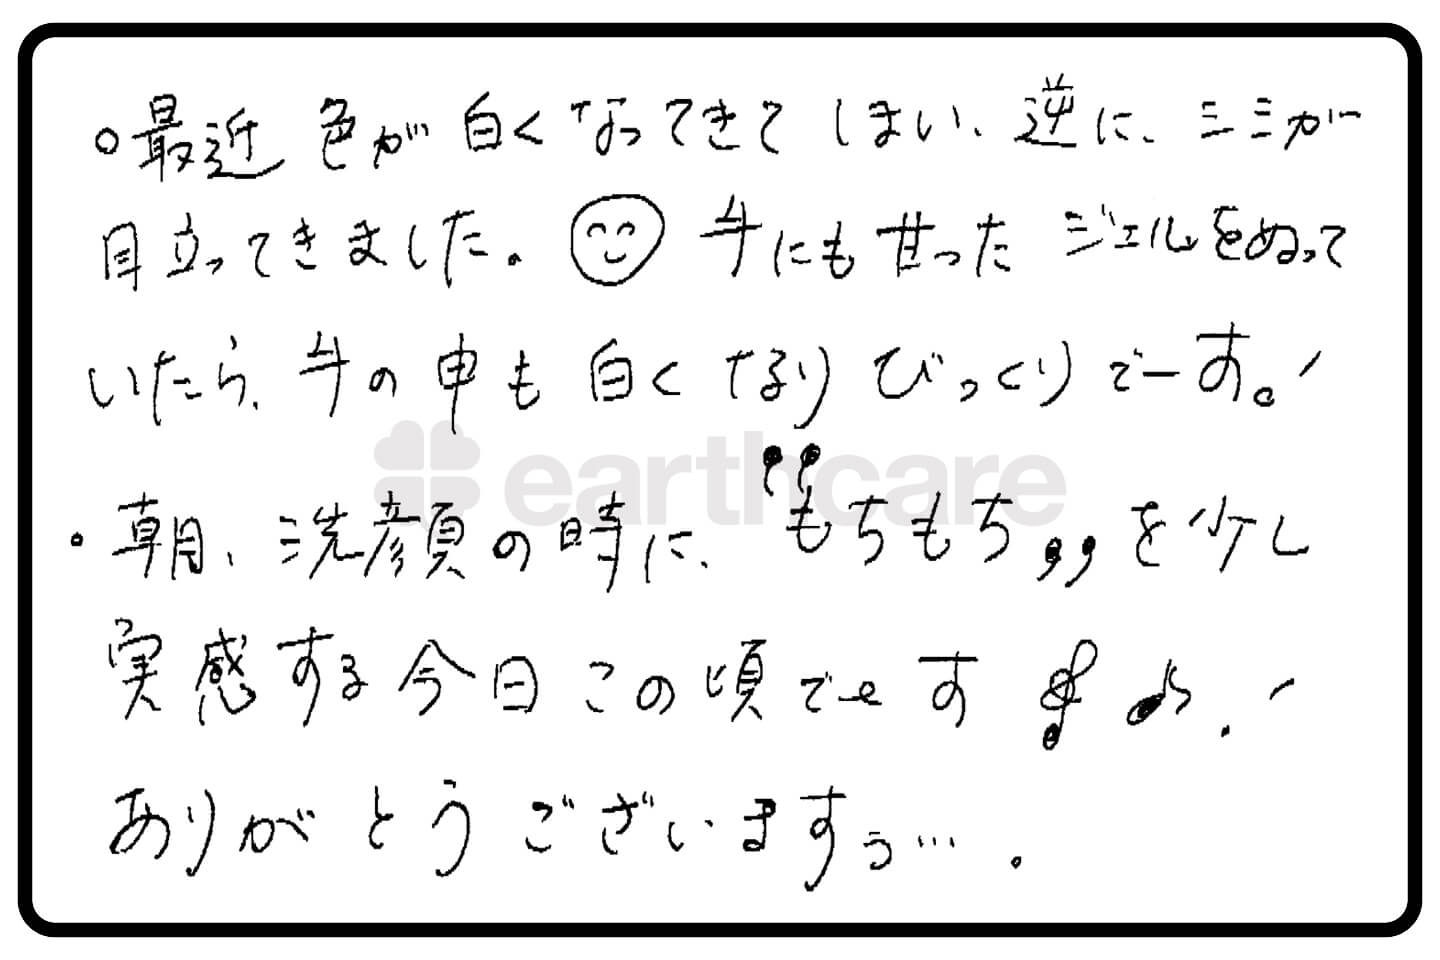 ○最近 色が 白くなってきて しまい、逆に、シミが
目立ってきました。手にも 甘った ジェルをぬって
いたら、手の甲も 白くなり びっくりでーす。!
earthcare
・朝、洗顔の時に、“もちもち”を少し
実感する今日この頃でーす♪!
ありがとうございますぅ….